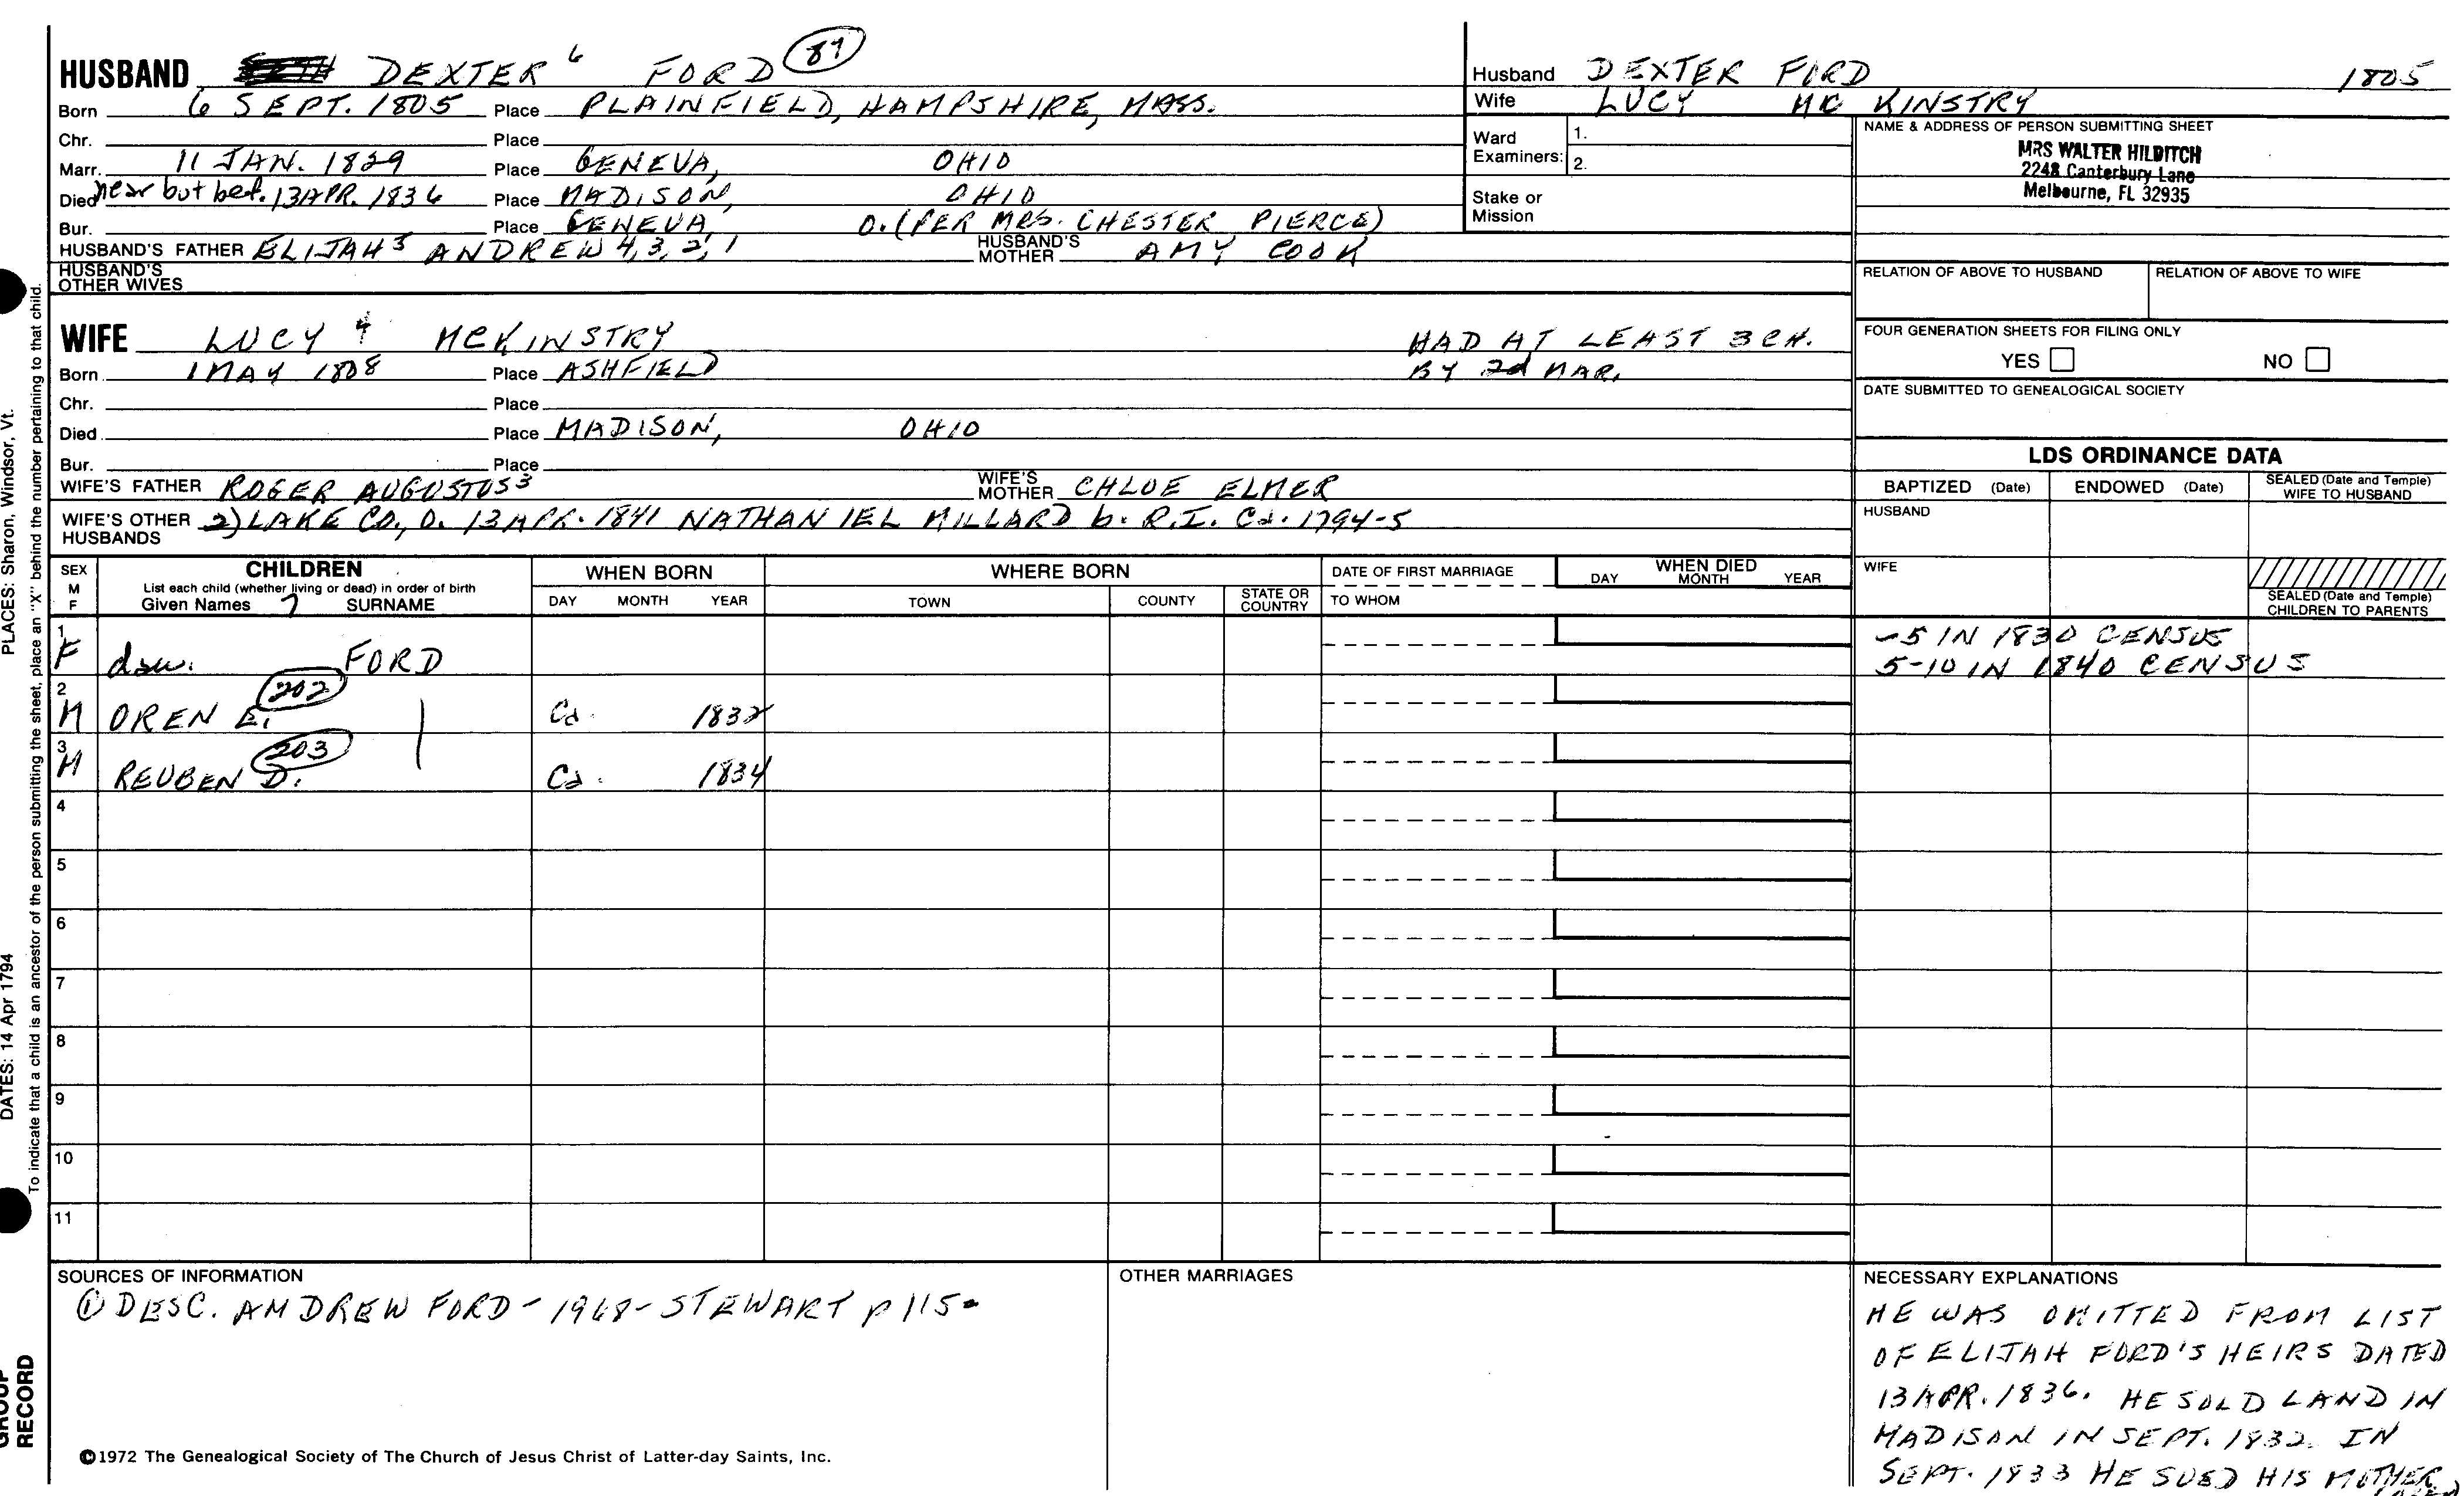 HUSBAND DEXTER 6 FORD 87
Born 6 SEPT. 1805 Place PLAINFIELD, HAMPSHIRE, MASS.
Chr. Place
Marr. 11 JAN. 1829 Place GENEVA, OHIO
Died near but bef. 13 APR. 1836 Place MADISON, OHIO
Bur. Place GENEVA, O. (PER MRS. CHESTER PIERCE)
HUSBAND'S FATHER ELIJAH 5 ANDREW 4,3,2,1 HUSBAND'S MOTHER AMY COOK
HUSBAND'S OTHER WIVES
WIFE LUCY 4 MCKINSTRY HAD AT LEAST 3 CH.
Born 1 MAY 1808 Place ASHFIELD BY 2d MAR.
Chr. Place
Died Place MADISON, OHIO
Bur. Place
WIFE'S FATHER ROGER AUGUSTUS 3 WIFE'S MOTHER CHLOE ELMER
WIFE'S OTHER HUSBANDS 2) LAKE CO., O. 13 APR. 1841 NATHANIEL MILLARD b. R.I. Ca. 1794-5
Husband DEXTER FORD 1805
Wife LUCY MC KINSTRY
Ward Examiners: 1.
2.
Stake or Mission
NAME & ADDRESS OF PERSON SUBMITTING SHEET
MRS WALTER HILDITCH
2248 Canterbury Lane
Melbourne, FL 32935
RELATION OF ABOVE TO HUSBAND RELATION OF ABOVE TO WIFE
FOUR GENERATION SHEETS FOR FILING ONLY
YES NO
DATE SUBMITTED TO GENEALOGICAL SOCIETY
LDS ORDINANCE DATA
BAPTIZED (Date) ENDOWED (Date) SEALED (Date and Temple) WIFE TO HUSBAND
HUSBAND
WIFE
SEALED (Date and Temple) CHILDREN TO PARENTS
SEX M F CHILDREN WHEN BORN WHERE BORN DATE OF FIRST MARRIAGE WHEN DIED
List each child (whether living or dead) in order of birth
Given Names 7 SURNAME DAY MONTH YEAR TOWN COUNTY STATE OR COUNTRY TO WHOM DAY MONTH YEAR
1 F dau. FORD -5 IN 1830 CENSUS
5-10 IN 1840 CENSUS
2 M OREN E. 202 Ca. 1832
3 M REUBEN D. 203 Ca. 1834
4
5
6
7
8
9
10
11
SOURCES OF INFORMATION
① DESC. ANDREW FORD - 1968 - STEWART p 115
©1972 The Genealogical Society of The Church of Jesus Christ of Latter-day Saints, Inc.
OTHER MARRIAGES
NECESSARY EXPLANATIONS
HE WAS OMITTED FROM LIST
OF ELIJAH FORD'S HEIRS DATED
13 APR. 1836. HE SOLD LAND IN
MADISON IN SEPT. 1832. IN
SEPT. 1833 HE SUED HIS MOTHER
PLACES: Sharon, Windsor, Vt.
DATES: 14 Apr 1794
To indicate that a child is an ancestor of the person submitting the sheet, place an "X" behind the number pertaining to that child.
GROUP
RECORD